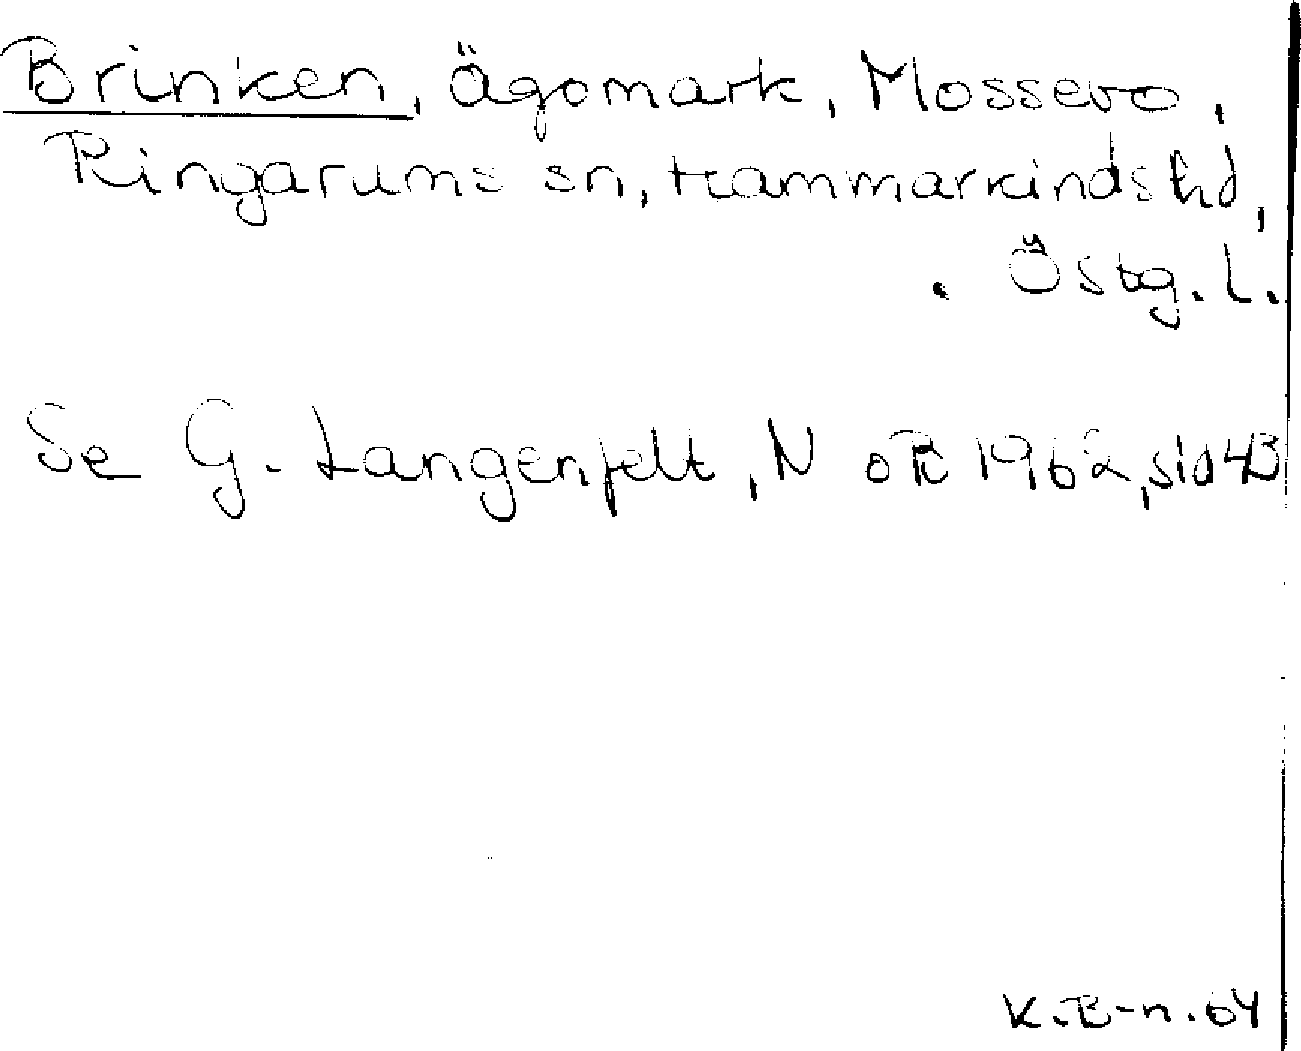 Brinken, Ägomark, Mossebo,
Ringarums sn, Hammarkinds hd,
Östg. l.
Se G. Langenfelt, N o B 1962, sid 43
K.B-n.64